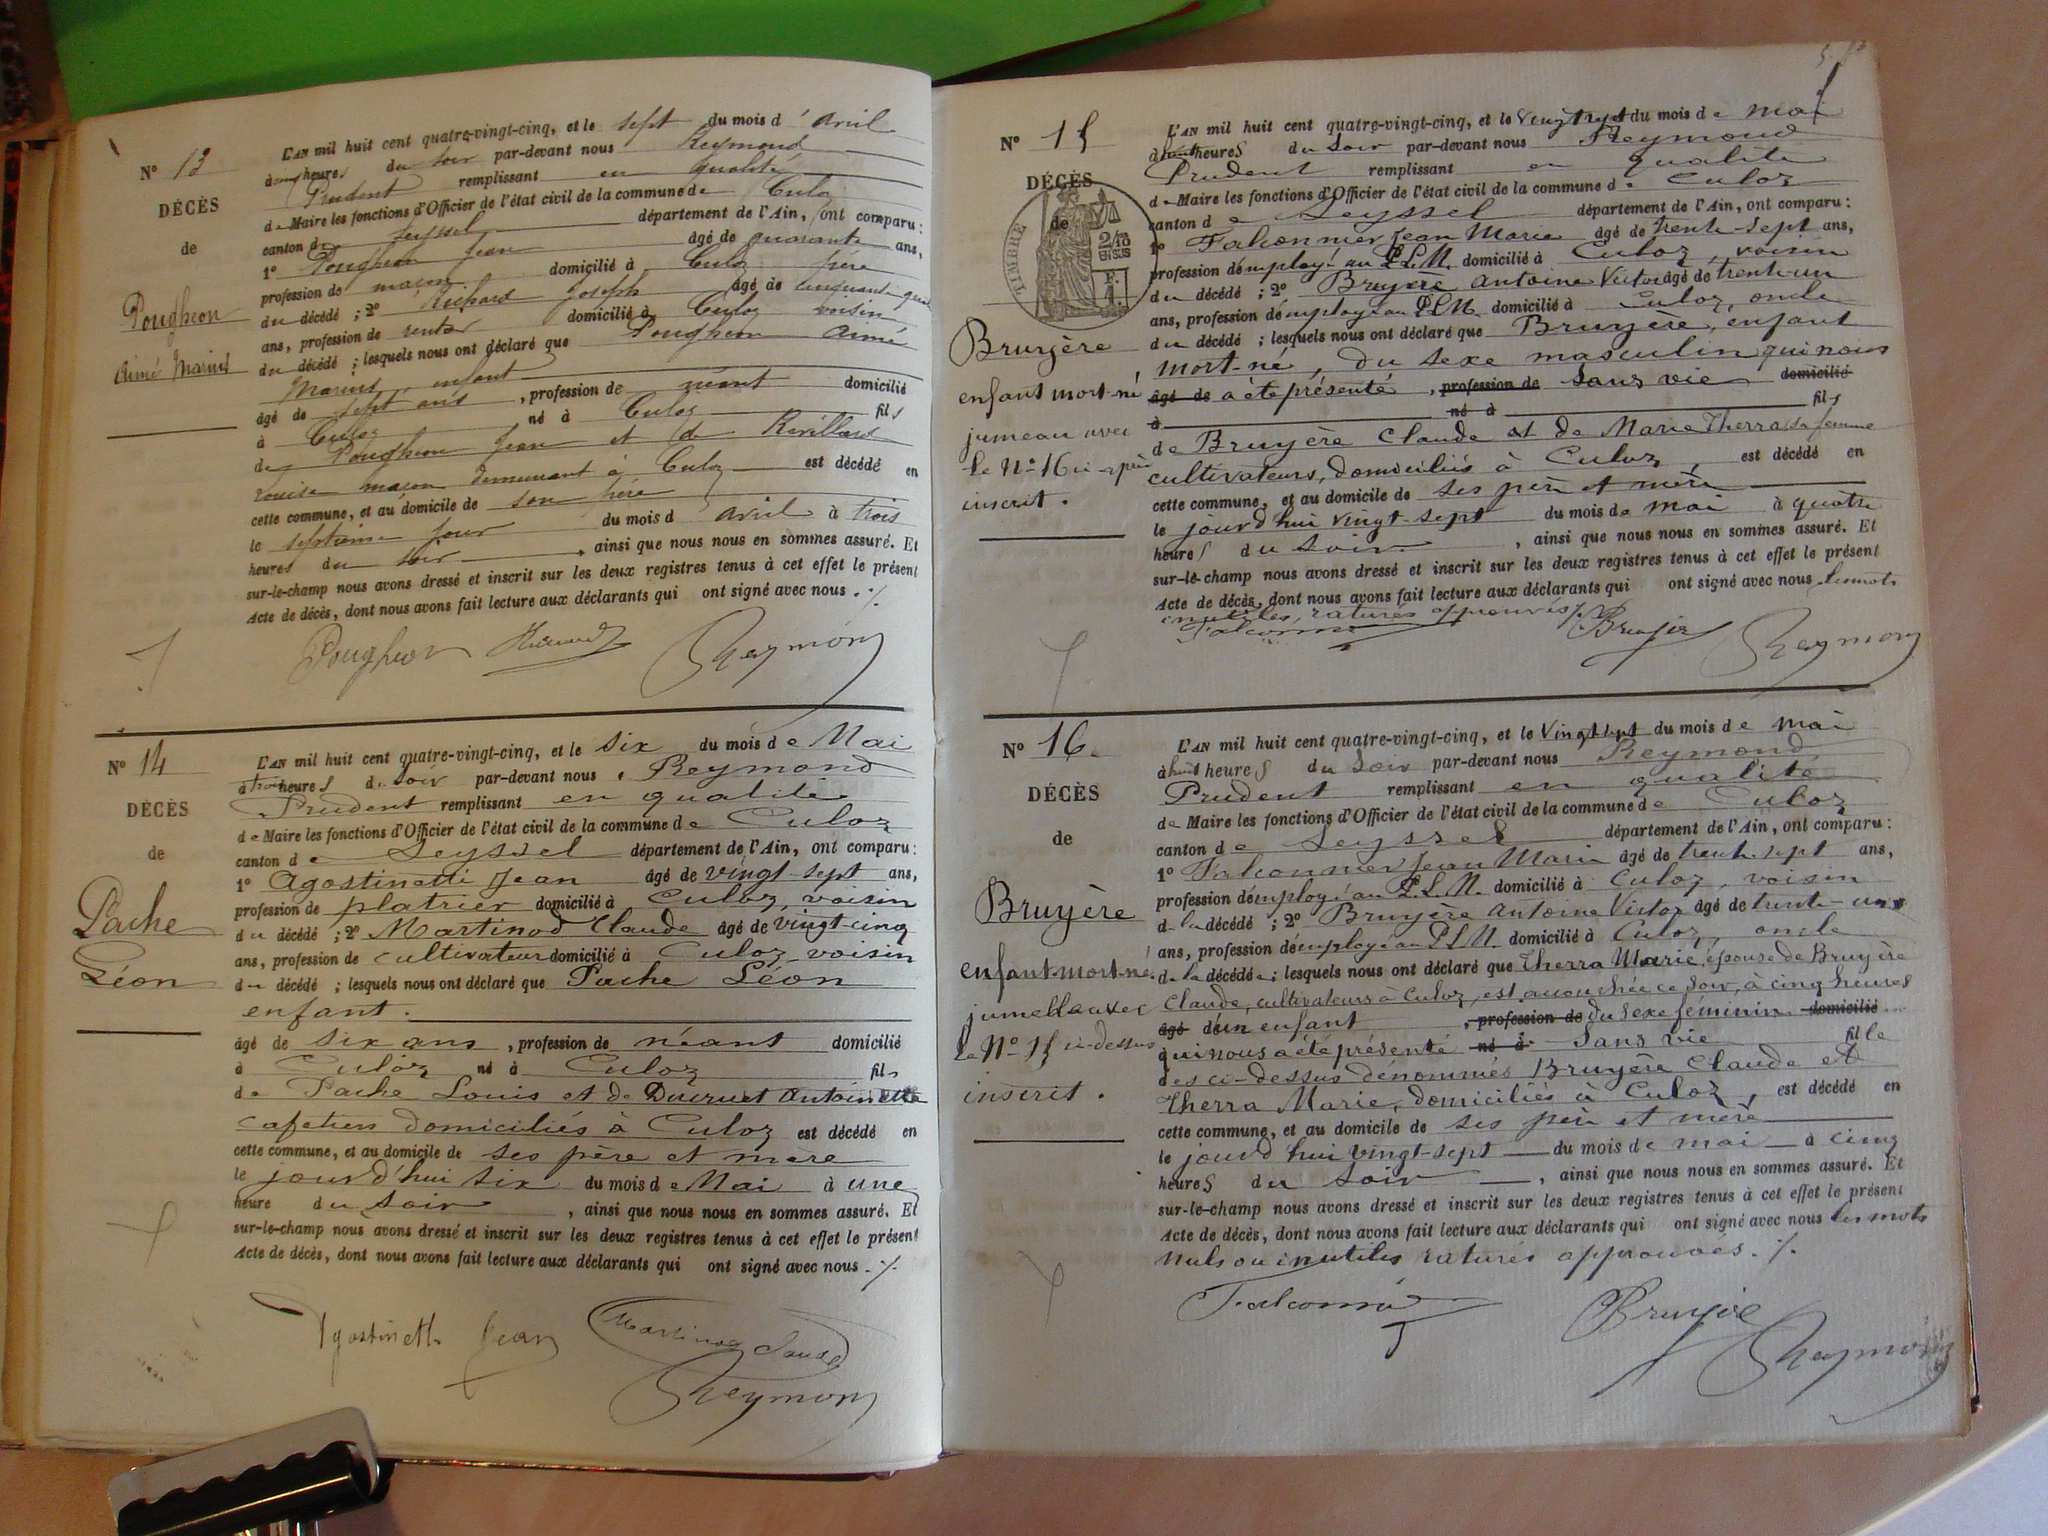 N° 13
DÉCÈS
de
Pougheon
Aimé Marius
L'AN mil huit cent quatre-vingt-cinq, et le sept du mois d'avril
à heures du soir par-devant nous Reymond
Prudent remplissant en qualité
de Maire les fonctions d'Officier de l'état civil de la commune de Culoz
canton de Seyssel département de l'Ain, ont comparu:
1° Pougheon Jean âgé de quarante ans,
profession de maçon domicilié à Culoz père
du décédé ; 2° Richard Joseph âgé de cinquante quatre
ans, profession de rentier domicilié à Culoz voisin
du décédé ; lesquels nous ont déclaré que Pougheon Aimé
Marius, enfant
âgé de sept ans, profession de néant domicilié
à Culoz né à Culoz fils
de Pougheon Jean et de Revillard
Louise maçon demeurant à Culoz est décédé en
cette commune, et au domicile de son père
le septième jour du mois d'avril à trois
heures du soir, ainsi que nous nous en sommes assuré. Et
sur-le-champ nous avons dressé et inscrit sur les deux registres tenus à cet effet le présent
Acte de décès, dont nous avons fait lecture aux déclarants qui ont signé avec nous ./.
Pougheon Reymond
N° 14
DÉCÈS
de
Pache
Léon
L'AN mil huit cent quatre-vingt-cinq, et le six du mois de Mai
à trois heures du soir par-devant nous, Reymond
Prudent remplissant en qualité
de Maire les fonctions d'Officier de l'état civil de la commune de Culoz
canton de Seyssel département de l'Ain, ont comparu:
1° Agostinetti Jean âgé de vingt-sept ans,
profession de platrier domicilié à Culoz, voisin
du décédé ; 2° Martinod Claude âgé de vingt-cinq
ans, profession de cultivateur domicilié à Culoz, voisin
du décédé ; lesquels nous ont déclaré que Pache Léon
enfant.
âgé de six ans, profession de néant domicilié
à Culoz né à Culoz fils
de Pache Louis et de Ducruet Antoinette
cafetiers domiciliés à Culoz est décédé en
cette commune, et au domicile de ses père et mère
le jourd'hui six du mois de Mai à une
heure du soir, ainsi que nous nous en sommes assuré. Et
sur-le-champ nous avons dressé et inscrit sur les deux registres tenus à cet effet le présent
Acte de décès, dont nous avons fait lecture aux déclarants qui ont signé avec nous ./.
Agostinetti Jean Martinod Claude
Reymond
N° 15
DÉCÈS
de
TIMBRE
2/10
EN SUS
Bruyère
enfant mort-né
jumeau avec
le N° 16 ci-après
inscrit.
L'AN mil huit cent quatre-vingt-cinq, et le vingt sept du mois de mai
à huit heures du soir par-devant nous Reymond
Prudent remplissant en qualité
de Maire les fonctions d'Officier de l'état civil de la commune de Culoz
canton de Seyssel département de l'Ain, ont comparu:
1° Falconnier Jean Marie âgé de trente-sept ans,
profession d'employé au P.L.M. domicilié à Culoz, voisin
du décédé ; 2° Bruyère Antoine Victor âgé de trente-un
ans, profession d'employé au P.L.M. domicilié à Culoz, oncle
du décédé ; lesquels nous ont déclaré que Bruyère, enfant
mort-né, du sexe masculin qui nous
âgé de a été présenté, profession de sans vie domicilié
à né à fils
de Bruyère Claude et de Marie Therra sa femme
cultivateurs, domiciliés à Culoz, est décédé en
cette commune, et au domicile de ses père et mère
le jourd'hui vingt-sept du mois de mai à quatre
heures du soir, ainsi que nous nous en sommes assuré. Et
sur-le-champ nous avons dressé et inscrit sur les deux registres tenus à cet effet le présent
Acte de décès, dont nous avons fait lecture aux déclarants qui ont signé avec nous les mots
inutiles, raturés approuvés ./.
Falconnier Bruyère Reymond
N° 16.
DÉCÈS
de
Bruyère
enfant-mort-né
jumelle avec
le N° 15 ci-dessus
inscrit.
L'AN mil huit cent quatre-vingt-cinq, et le vingt sept du mois de mai
à huit heures du soir par-devant nous Reymond
Prudent remplissant en qualité
de Maire les fonctions d'Officier de l'état civil de la commune de Culoz
canton de Seyssel département de l'Ain, ont comparu:
1° Falconnier Jean Marie âgé de trente-sept ans,
profession d'employé au P.L.M. domicilié à Culoz, voisin
de la décédée ; 2° Bruyère Antoine Victor âgé de trente-un
ans, profession d'employé au P.L.M. domicilié à Culoz, oncle
de la décédée ; lesquels nous ont déclaré que Therra Marie, épouse de Bruyère
Claude, cultivateurs à Culoz, est accouchée ce soir, à cinq heures
âgé d'un enfant, profession de du sexe féminin domicilié
qui nous a été présenté né à sans vie fille
des ci-dessus dénommés Bruyère Claude et
Therra Marie, domiciliés à Culoz, est décédé en
cette commune, et au domicile de ses père et mère
le jourd'hui vingt-sept du mois de mai à cinq
heures du soir, ainsi que nous nous en sommes assuré. Et
sur-le-champ nous avons dressé et inscrit sur les deux registres tenus à cet effet le présent
Acte de décès, dont nous avons fait lecture aux déclarants qui ont signé avec nous les mots
nuls ou inutiles raturés approuvés ./.
Falconnier Bruyère Reymond